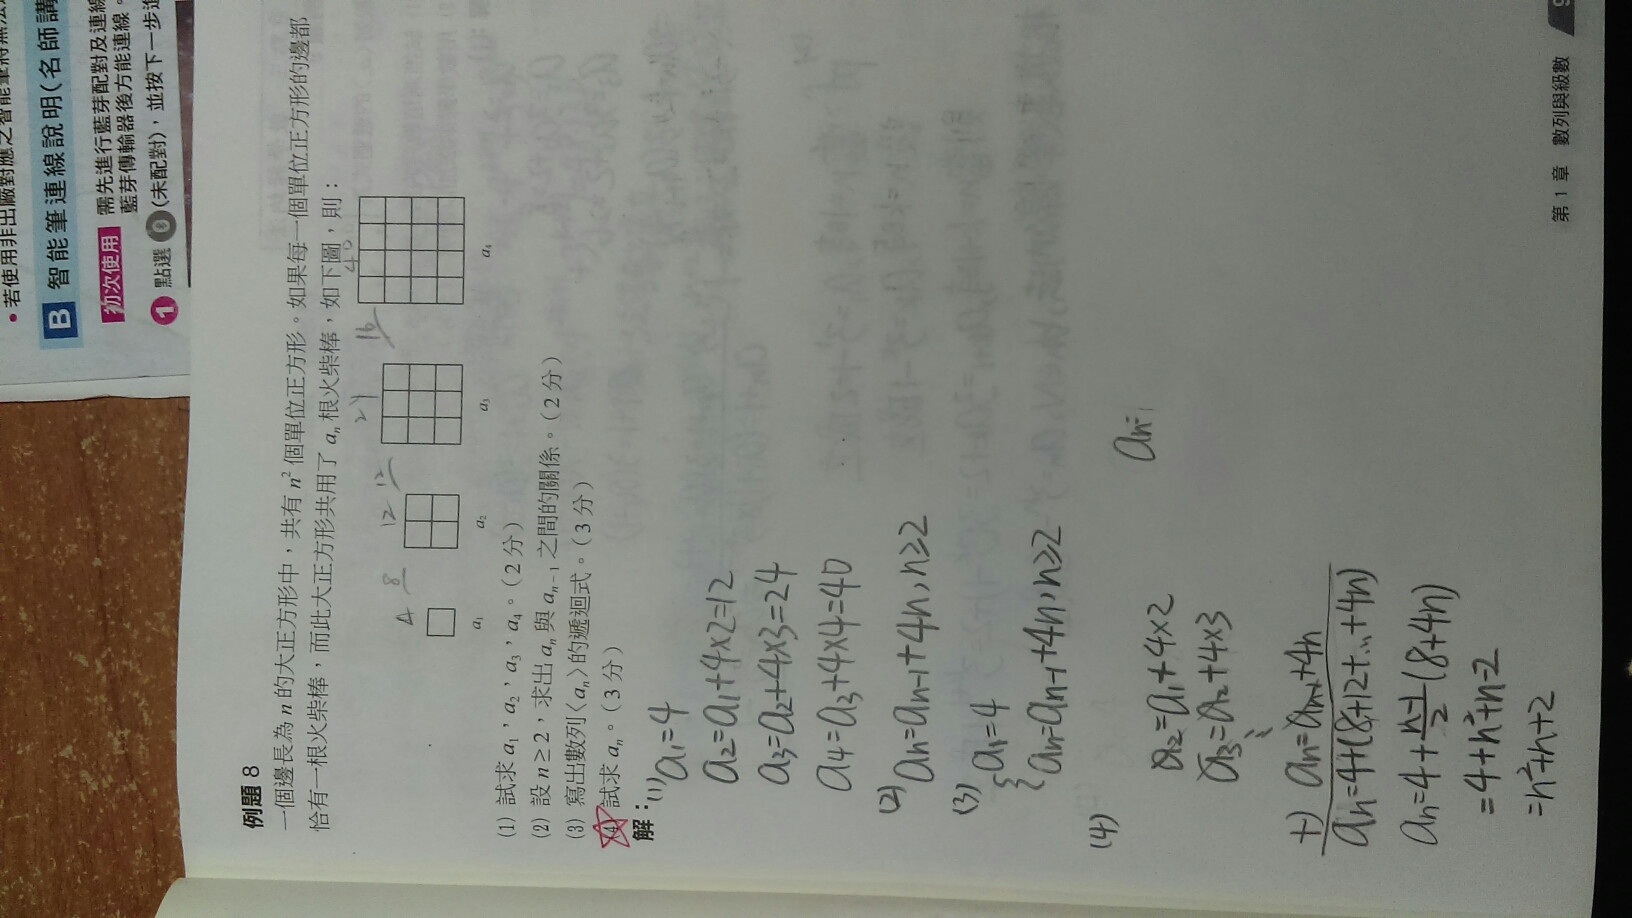 • 若使用非出廠對應之智能筆將無法
B 智能筆連線說明(名師講
初次使用 需先進行藍芽配對及連線
藍芽傳輸器後方能連線。
1 點選 (未配對),並按下一步進
例題 8
一個邊長為 n 的大正方形中,共有 n² 個單位正方形。如果每一個單位正方形的邊都
恰有一根火柴棒,而此大正方形共用了 aₙ 根火柴棒,如下圖,則:
4 8 12 12 24 16 40
a₁ a₂ a₃ a₄
(1) 試求 a₁,a₂,a₃,a₄。(2 分)
(2) 設 n ≥ 2,求出 aₙ 與 aₙ₋₁ 之間的關係。(2 分)
(3) 寫出數列〈aₙ〉的遞迴式。(3 分)
(4) 試求 aₙ。(3 分)
解:
(1) a₁=4
a₂=a₁+4×2=12
a₃=a₂+4×3=24
a₄=a₃+4×4=40
(2) an=an-1+4n,n≥2
(3) { a₁=4
an=an-1+4n,n≥2
(4)
an-1
a₂=a₁+4×2
a₃=a₂+4×3
+) an=an-1+4n
an=4+(8+12+...+4n)
an=4+n-1/2(8+4n)
=4+n²+n-2
=n²+n+2
第 1 章 數列與級數
9